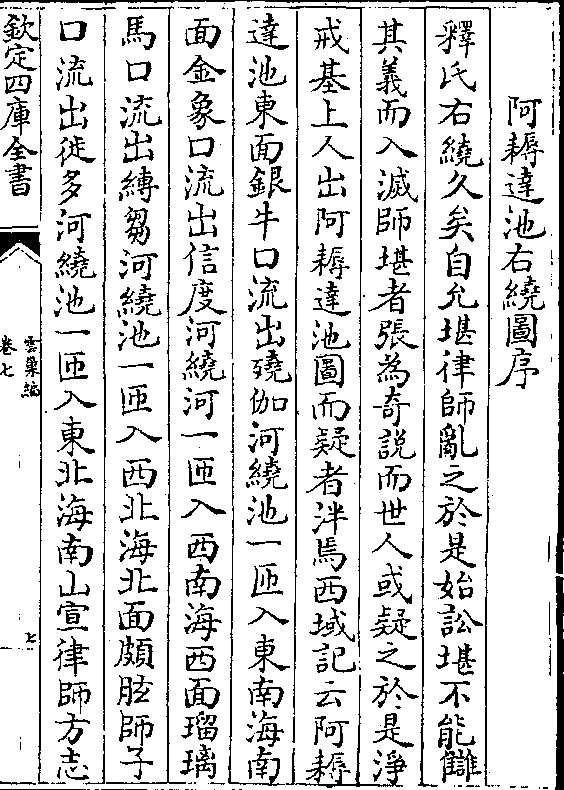 阿耨達池右繞圖序
釋氏右繞久矣自允堪律師亂之於是始訟堪不能讎
其義而入滅師堪者張為奇說而世人或疑之於是淨
戒基上人出阿耨達池圖而疑者泮焉西域記云阿耨
達池東面銀牛口流出殑伽河繞池一匝入東南海南
面金象口流出信度河繞河一匝入西南海西面瑠璃
馬口流出縛芻河繞池一匝入西北海北面頗胝師子
口流出徙多河繞池一匝入東北海南山宣律師方志
欽定四庫全書
雲巢編
卷七
七